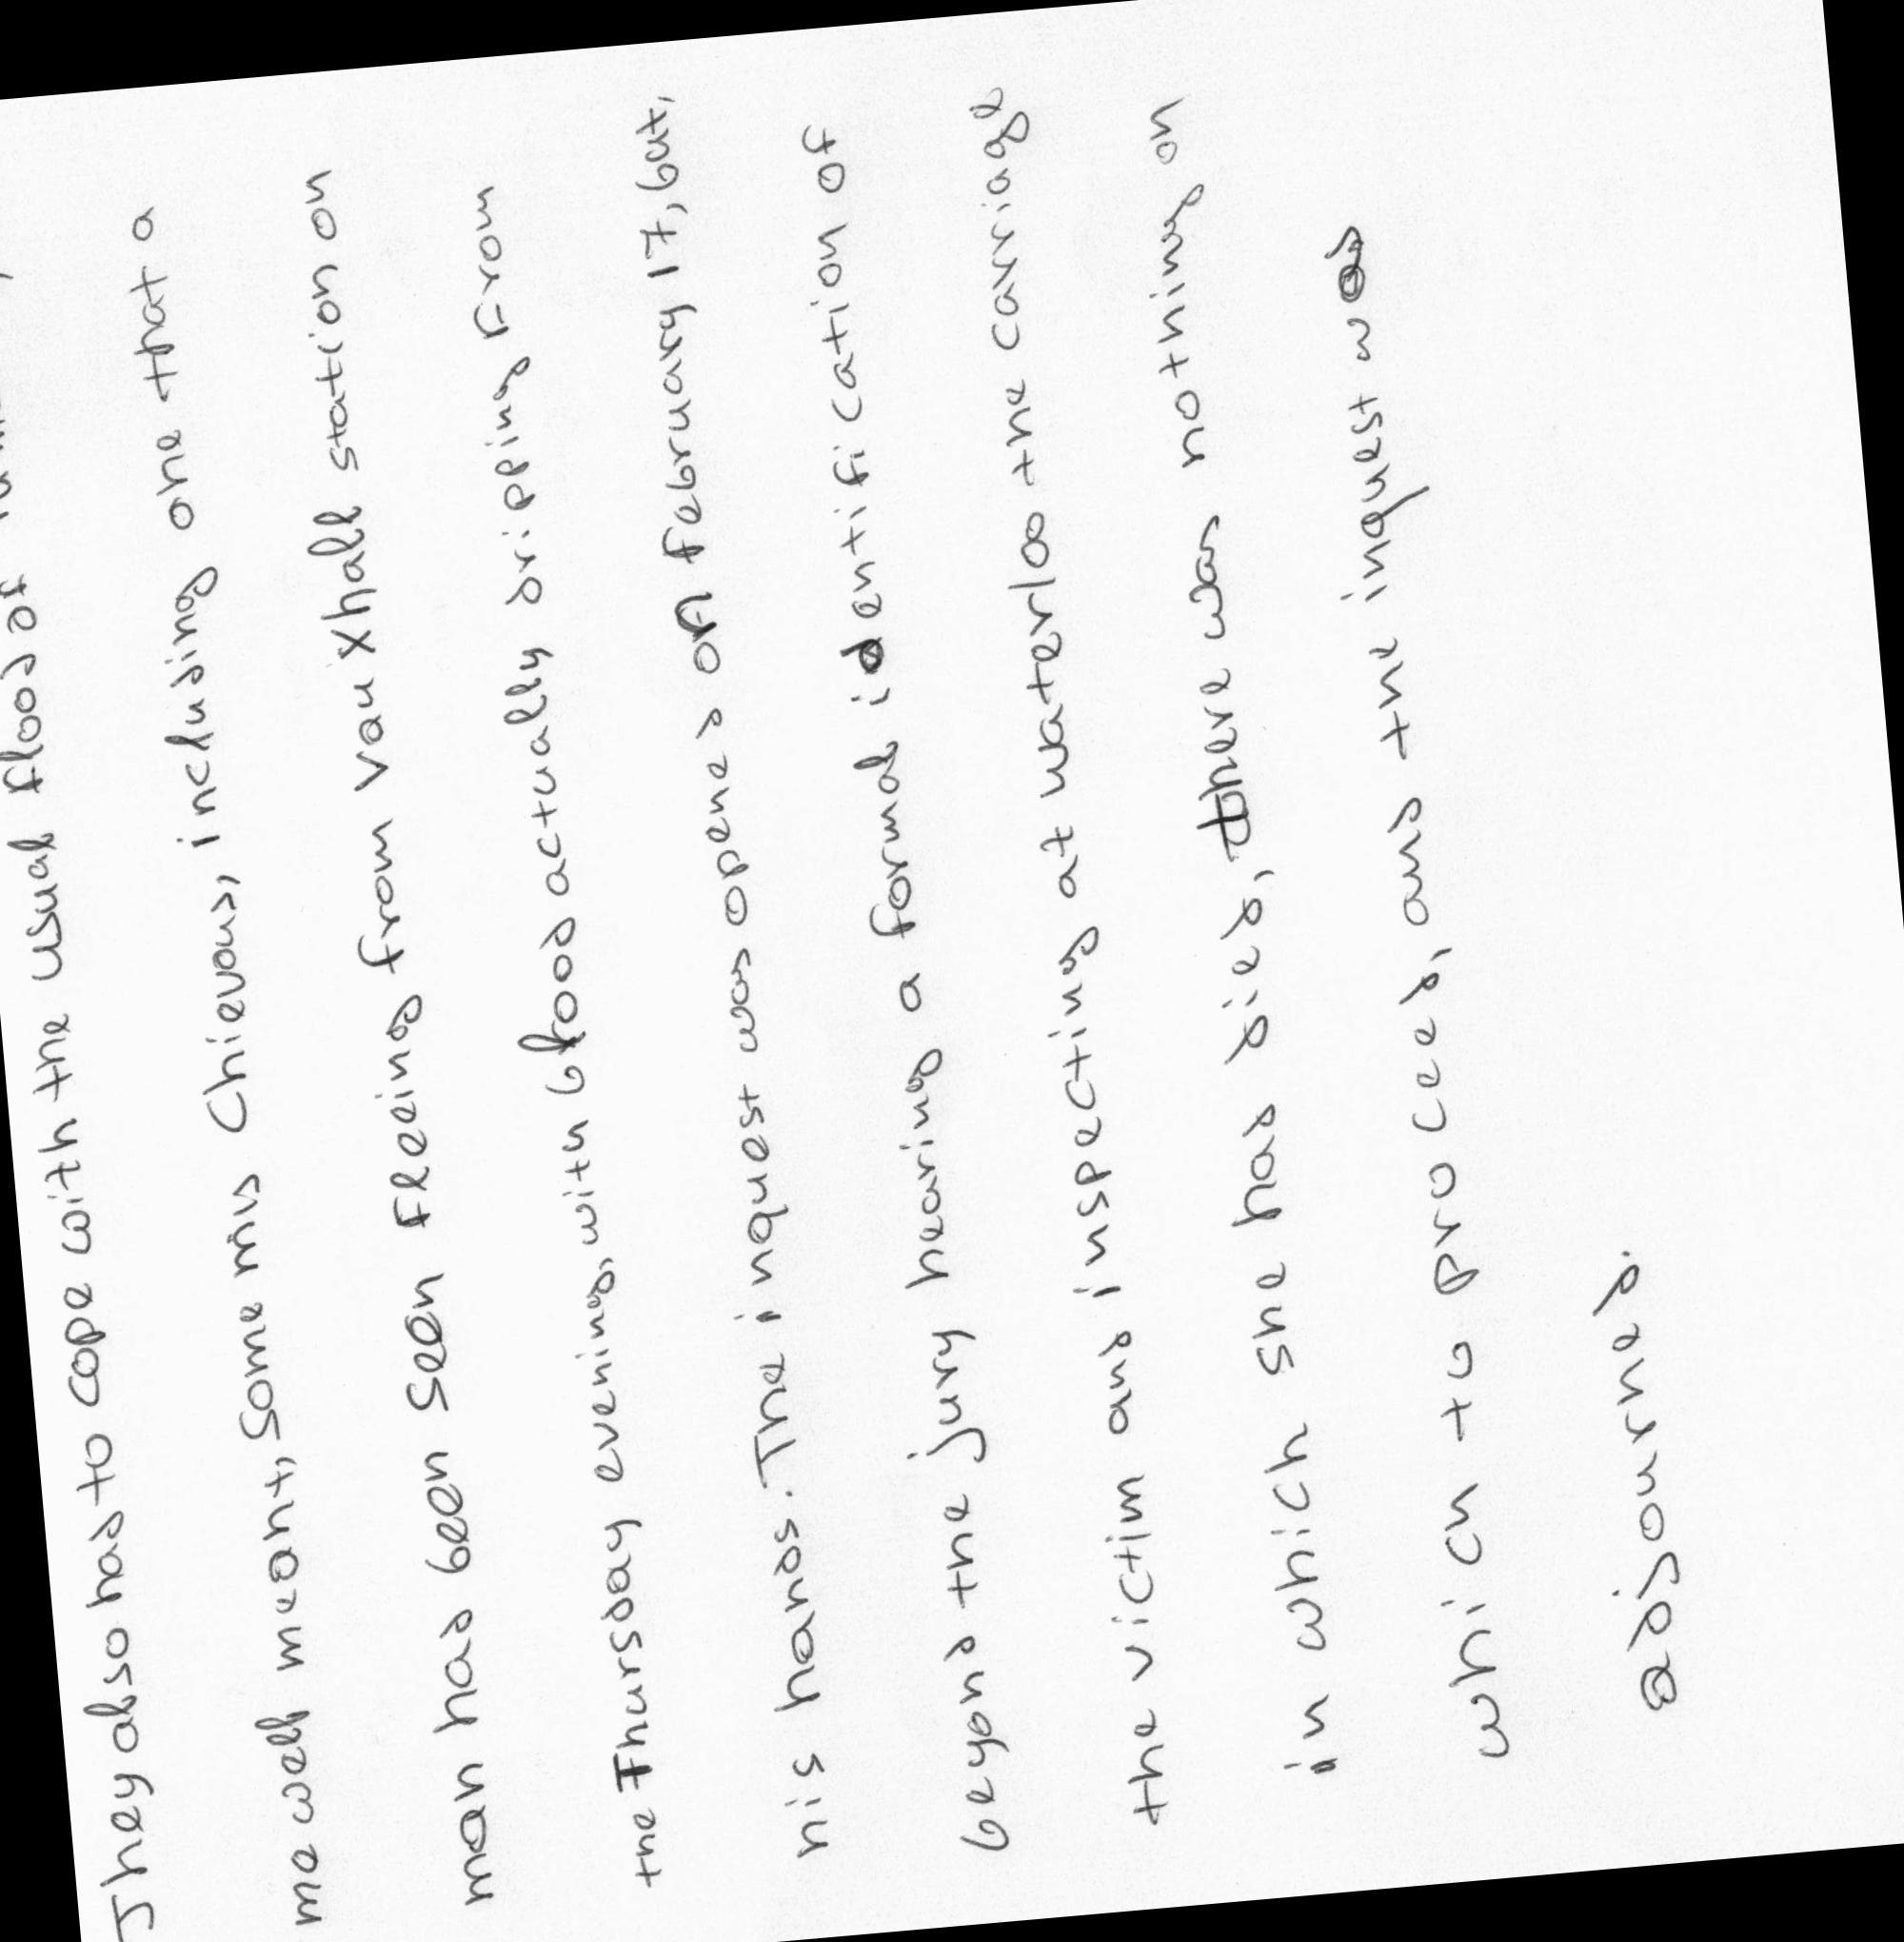 They also had to cope with the usual flood of
me well meant, some mis chievous, including one that a
man had been seen fleeing from Vauxhall station on
the Thursday evening, with blood actually dripping from
his hands. The inquest was opened on february 17, but,
beyond the jury hearing a formal identification of
the victim and inspecting at waterloo the carriage
in which she had died, there was nothing on
which to proceed, and the inquest was
adjourned.